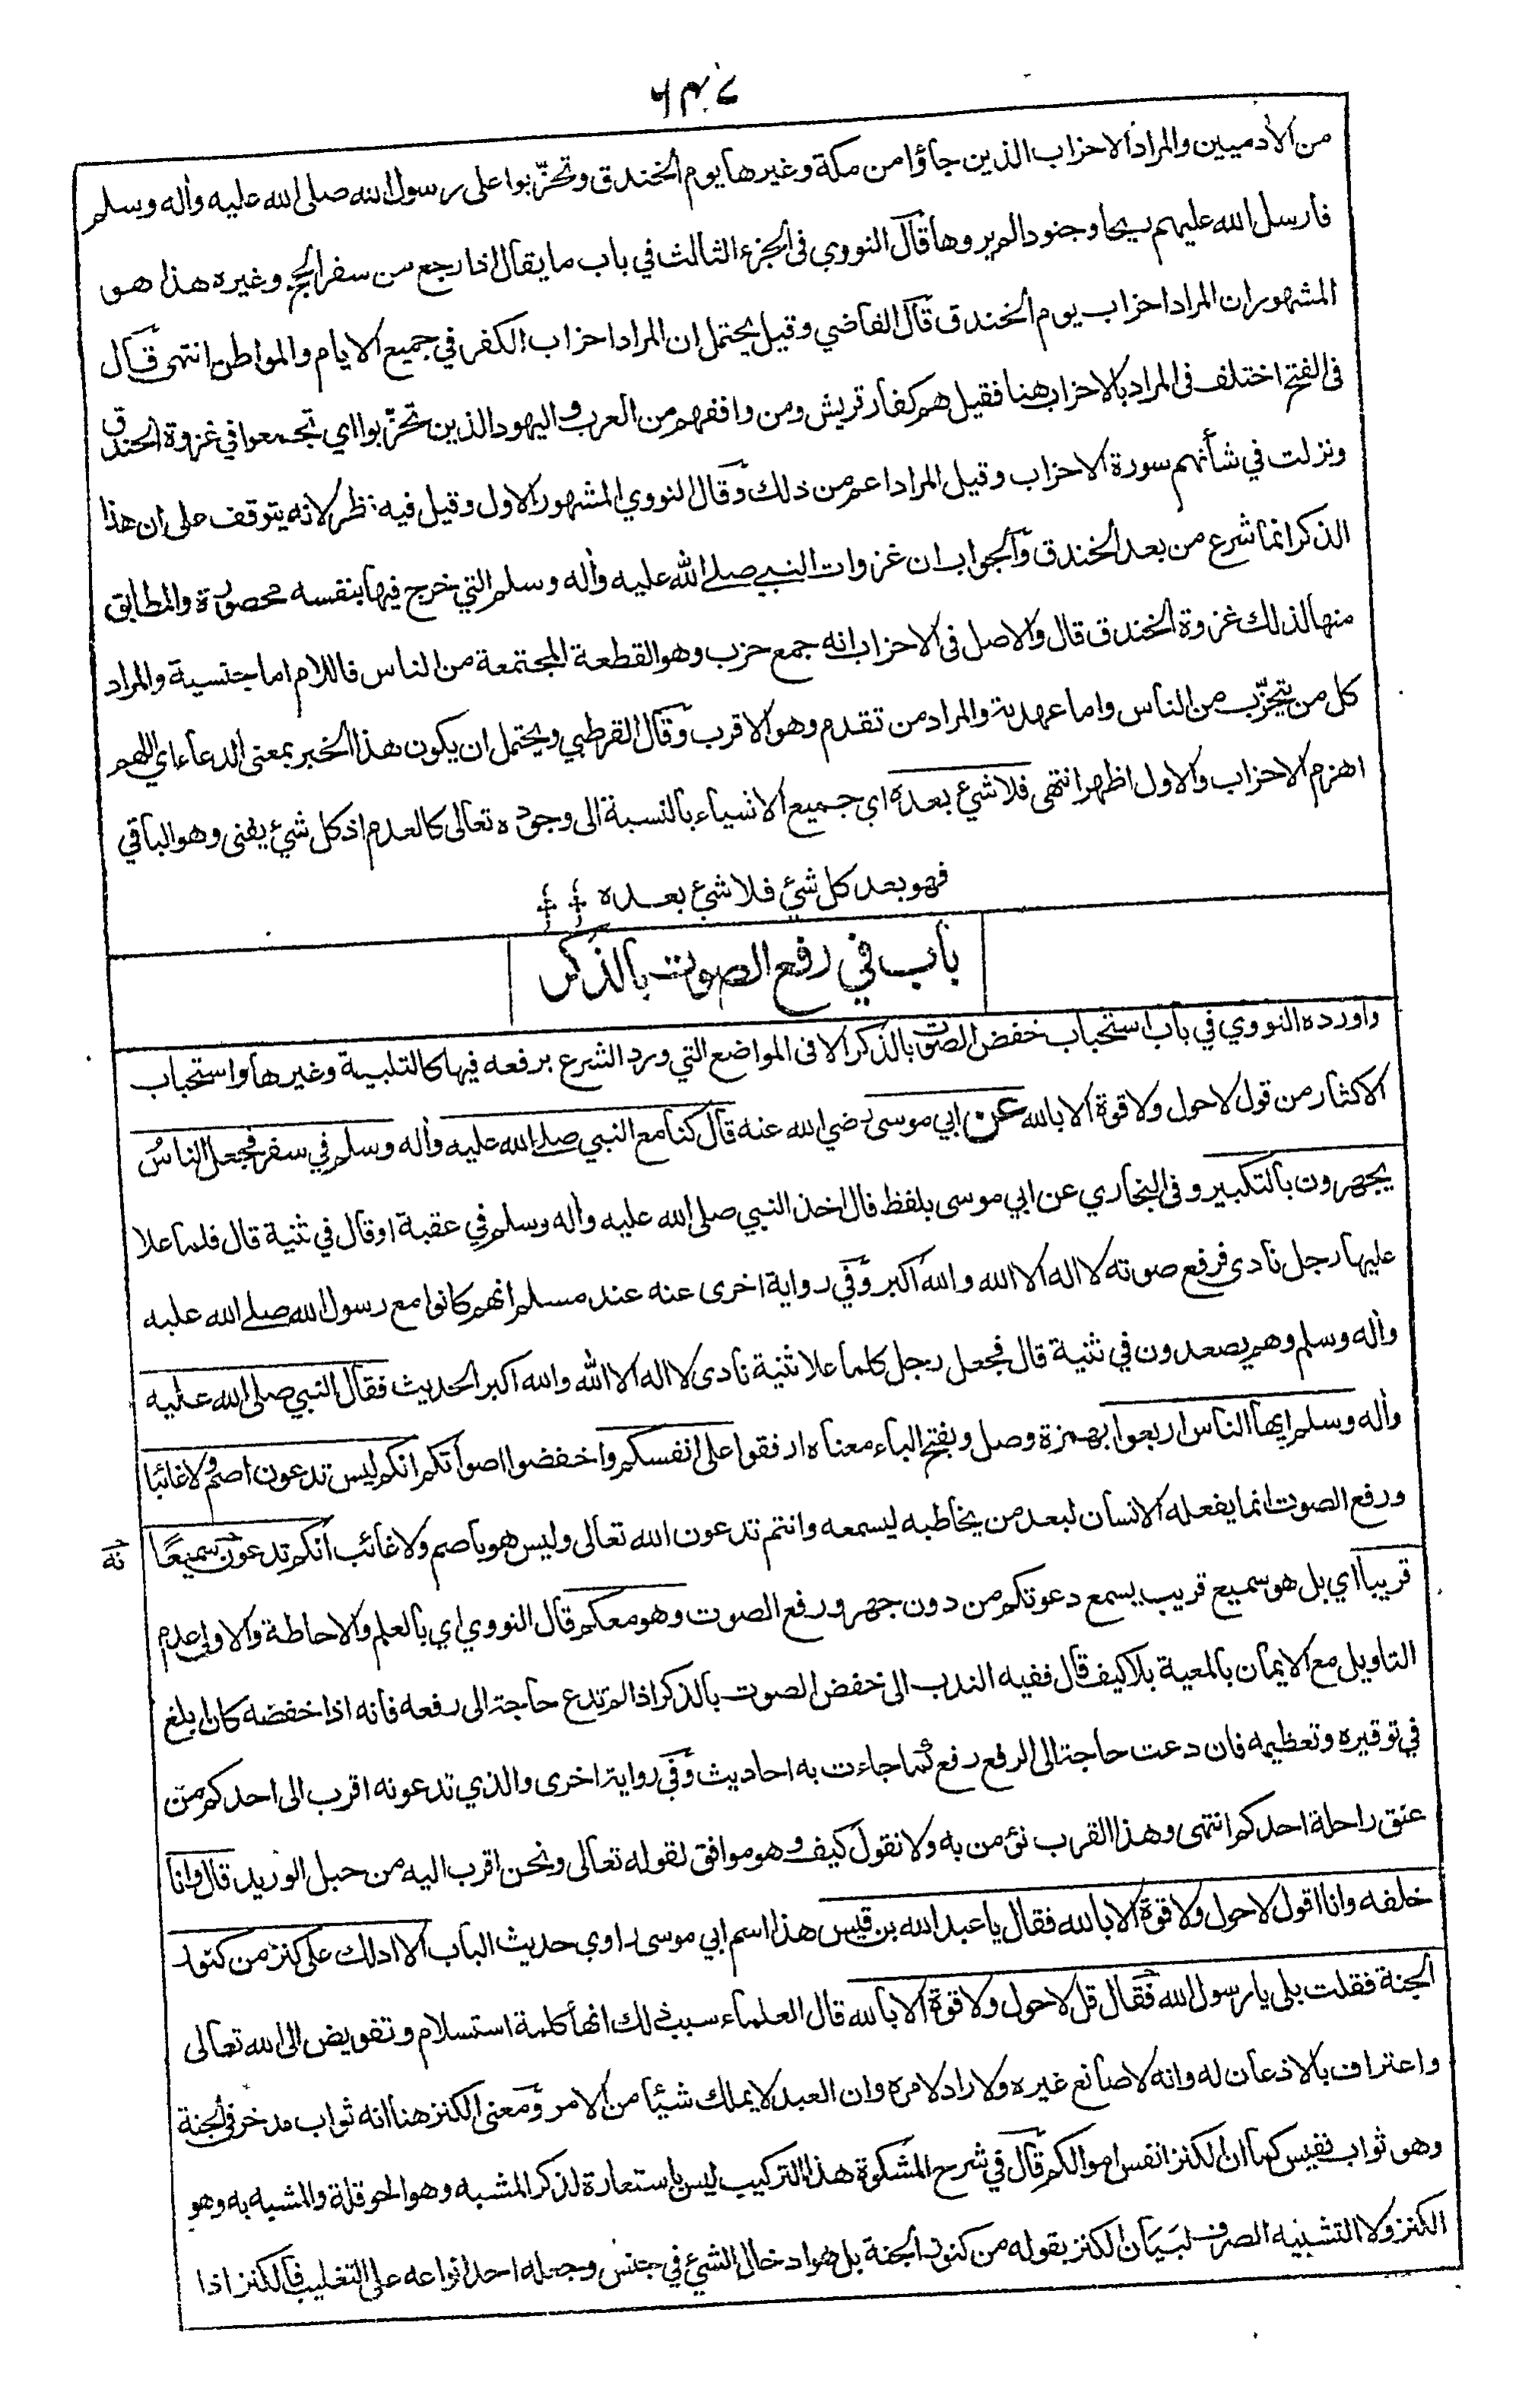 ٦٤٧
من الآدميين والمراد الاحزاب الذين جاؤا من مكة وغيرها يوم الخندق وتحزّبوا على رسول الله صلى الله عليه وآله وسلم
فارسل الله عليهم ريحا وجنودا لم يروها قال النووي فى الجزء الثالث في باب ما يقال اذا رجع من سفر الحج وغيره هذا هو
المشهور ان المراد احزاب يوم الخندق قال القاضي وقيل يحتمل ان المراد احزاب الكفر في جميع الايام والمواطن انتهى قال
فى الفتح اختلف فى المراد بالاحزاب هنا فقيل هم كفار قريش ومن وافقهم من العرب واليهود الذين تحزّبوا اي تجمعوا في غزوة الخندق
ونزلت في شأنهم سورة الاحزاب وقيل المراد اعم من ذلك وقال النووي المشهور الاول وقيل فيه نظر لانه يتوقف على ان هذا
الذكر انما شرع من بعد الخندق والجواب ان غزوات النبي صلے الله عليه وآله وسلم التي خرج فيها بنفسه محصورة والمطابق
منها لذلك غزوة الخندق قال والاصل فى الاحزاب انه جمع حزب وهو القطعة المجتمعة من الناس فاللام اما جنسية والمراد
كل من يتحزّب من الناس واما عهدية والمراد من تقدم وهو الاقرب وقال القرطبي ويحتمل ان يكون هذا الخبر بمعنى الدعاء اي اللهم
اهزم الاحزاب والاول اظهر انتهى فلا شيء بعده اي جميع الاشياء بالنسبة الى وجوده تعالى كالعدم اذ كل شيء يفنى وهو الباقي
فهو بعد كل شيء فلا شيء بعده
باب في رفع الصوت بالذكر
واورده النووي في باب استحباب خفض الصوت بالذكر الا فى المواضع التي ورد الشرع برفعه فيها كالتلبية وغيرها واستحباب
الاكثار من قول لا حول ولا قوة الا بالله عن ابي موسى رضي الله عنه قال كنا مع النبي صلے الله عليه وآله وسلم في سفر فجعل الناسُ
يجهرون بالتكبير وفى البخاري عن ابي موسى بلفظ قال اخذ النبي صلى الله عليه وآله وسلم في عقبة او قال في ثنية قال فلما علا
عليها رجل نادى فرفع صوته لا اله الا الله والله اكبر وفي رواية اخرى عنه عند مسلم انهم كانوا مع رسول الله صلے الله عليه
وآله وسلم وهم يصعدون في ثنية قال فجعل رجل كلما علا ثنية نادى لا اله الا الله والله اكبر الحديث فقال النبي صلى الله عليه
وآله وسلم ايها الناس اربعوا بهمزة وصل وبفتح الباء معناه ارفقوا على انفسكم واخفضوا اصواتكم انكم ليس تدعون اصم ولا غائبا
ورفع الصوت انما يفعله الانسان لبعد من يخاطبه ليسمعه وانتم تدعون الله تعالى وليس هو باصم ولا غائب انكم تدعون سميعًا
قريبا اي بل هو سميع قريب يسمع دعوتكم من دون جهر ورفع الصوت وهو معكم قال النووي اي بالعلم والاحاطة والاولى عدم
التاويل مع الايمان بالمعية بلا كيف قال ففيه الندب الى خفض الصوت بالذكر اذا لم تدع حاجة الى رفعه فانه اذا خفضه كان ابلغ
في توقيره وتعظيمه فان دعت حاجة الى الرفع رفع كما جاءت به احاديث وفي رواية اخرى والذي تدعونه اقرب الى احدكم من
عنق راحلة احدكم انتهى وهذا القرب نؤمن به ولا نقول كيف وهو موافق لقوله تعالى ونحن اقرب اليه من حبل الوريد قال وانا
خلفه وانا اقول لا حول ولا قوة الا بالله فقال يا عبد الله بن قيس هذا اسم ابي موسى راوي حديث الباب الا ادلك على كنز من كنوز
الجنة فقلت بلى يا رسول الله فقال قل لا حول ولا قوة الا بالله قال العلماء سبب ذلك انها كلمة استسلام وتفويض الى الله تعالى
واعتراف بالاذعان له وانه لا صانع غيره ولا راد لامره وان العبد لا يملك شيئا من الامر ومعنى الكنز هنا انه ثواب مدخر فى الجنة
وهو ثواب نفيس كما ان الكنز انفس اموالكم قال في شرح المشكوة هذا التركيب ليس باستعارة لذكر المشبه وهو الحوقلة والمشبه به وهو
الكنز ولا التشبيه الصرف لبيان الكنز بقوله من كنوز الجنة بل هو ادخال الشيء في جنس وجعله احد انواعه على التغليب فالكنز اذا